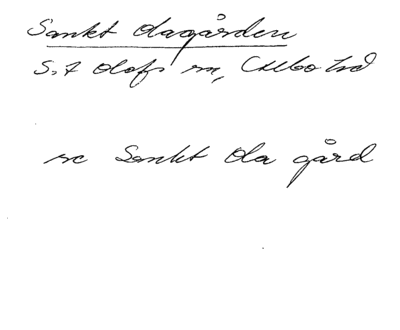 Sankt Olagården
S:t Olofs sn, Albo hd
se Sankt Ola gård